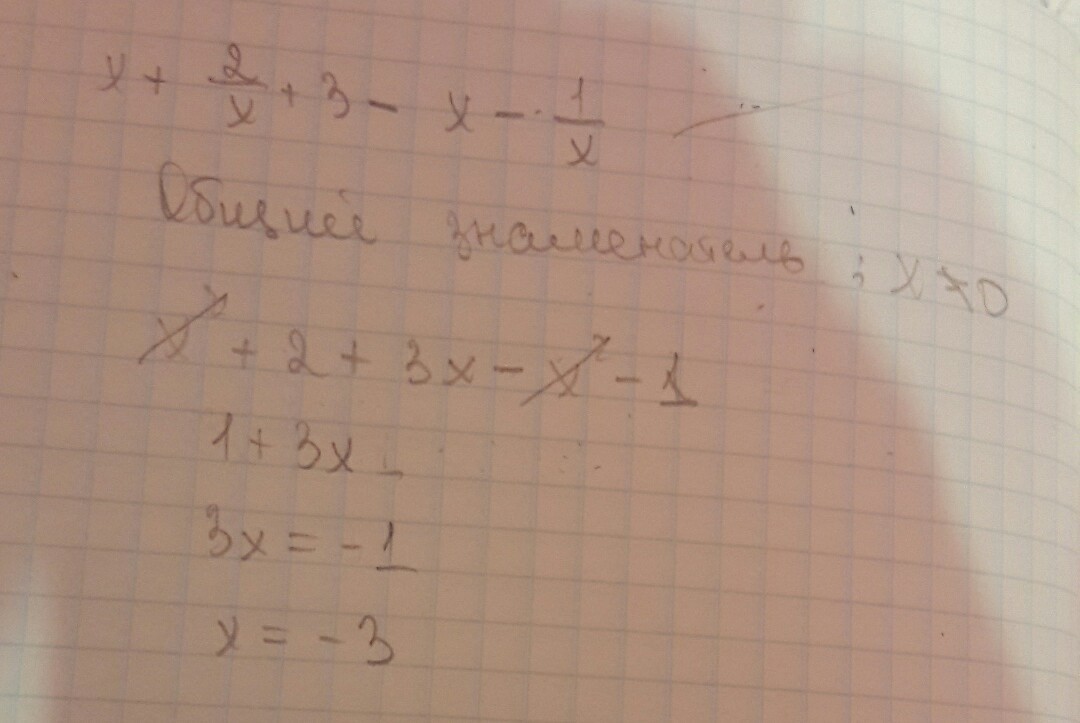 x + 2/x + 3 - x - 1/x
Общий знаменатель: x≠0
x² + 2 + 3x - x² - 1
1 + 3x
3x = -1
x = -3